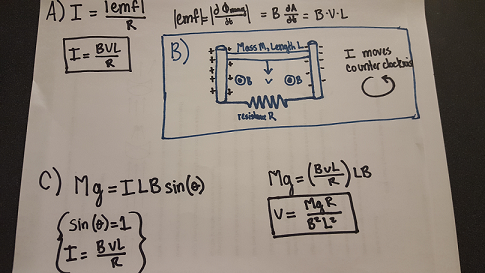 A) I = |emf| / R
|emf| = |dΦmag / dt| = B dA/dt = B·V·L
I = BVL / R
B)
Mass M, Length L
+ + + + + +
- - - - - -
B
v
B
resistance R
I moves
counter clockwise
C) Mg = ILB sin(θ)
sin(θ) = 1
I = BVL / R
Mg = (BVL / R) LB
V = MgR / B²L²